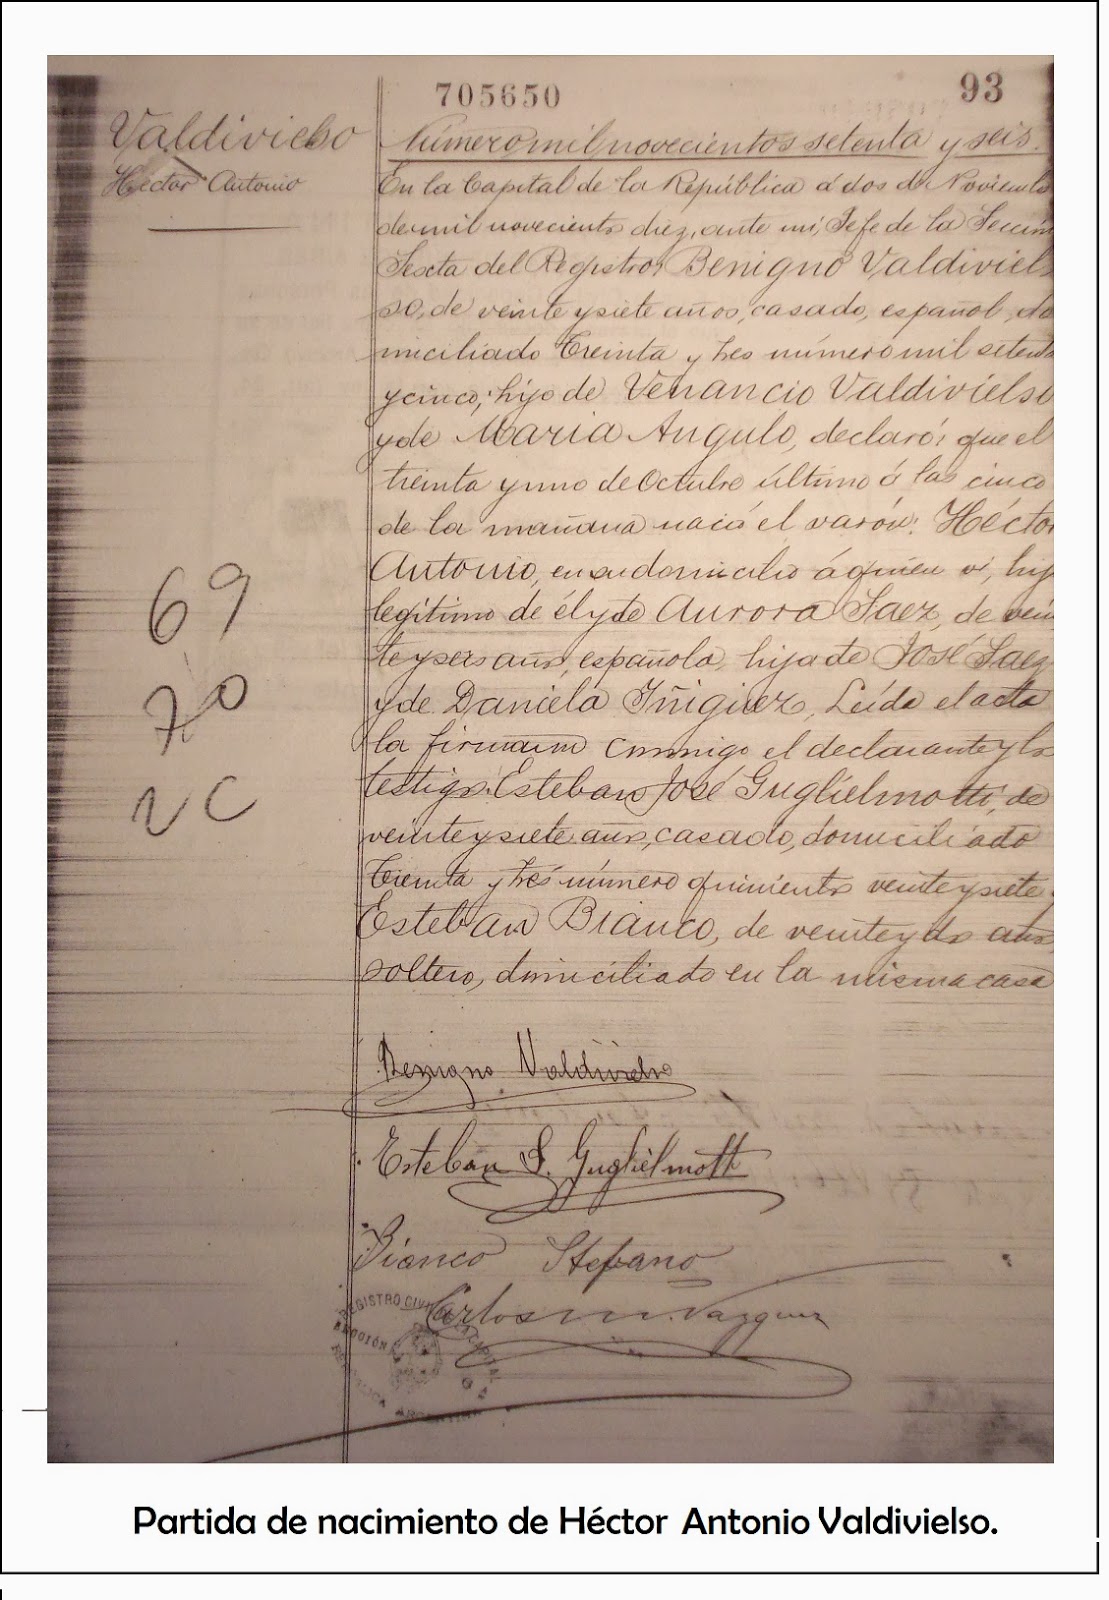 705650
93
Valdivielso
Héctor Antonio
Número mil novecientos setenta y seis.
En la Capital de la República á dos de Noviembre
de mil novecientos diez, ante mi, Jefe de la Sección
Sexta del Registro, Benigno Valdiviel-
so, de veinte y siete años, casado, español, do
miciliado Treinta y tres número mil setenta
y cinco, hijo de Venancio Valdivielso
y de María Angulo, declaró: que el
treinta y uno de Octubre último á las cinco
de la mañana nació el varón: Héctor
Antonio, en su domicilio á quien vi, hijo
legítimo de él y de Aurora Saez, de vein
te y seis años, española, hija de José Saez
y de Daniela Iñiguez. Leída el acta
la firmaron conmigo el declarante y los
testigos: Esteban José Guglielmotti, de
veinte y siete años, casado, domiciliado
Treinta y tres número quinientos veinte y siete
Esteban Bianco, de veinte y dos años
soltero, domiciliado en la misma casa
69
70
Benigno Valdivielso
Esteban J. Guglielmotti
Bianco Stefano
Carlos M. Vazquez
REGISTRO CIVIL DE LA CAPITAL
SECCIÓN 6
REPUBLICA ARGENTINA
Partida de nacimiento de Héctor Antonio Valdivielso.